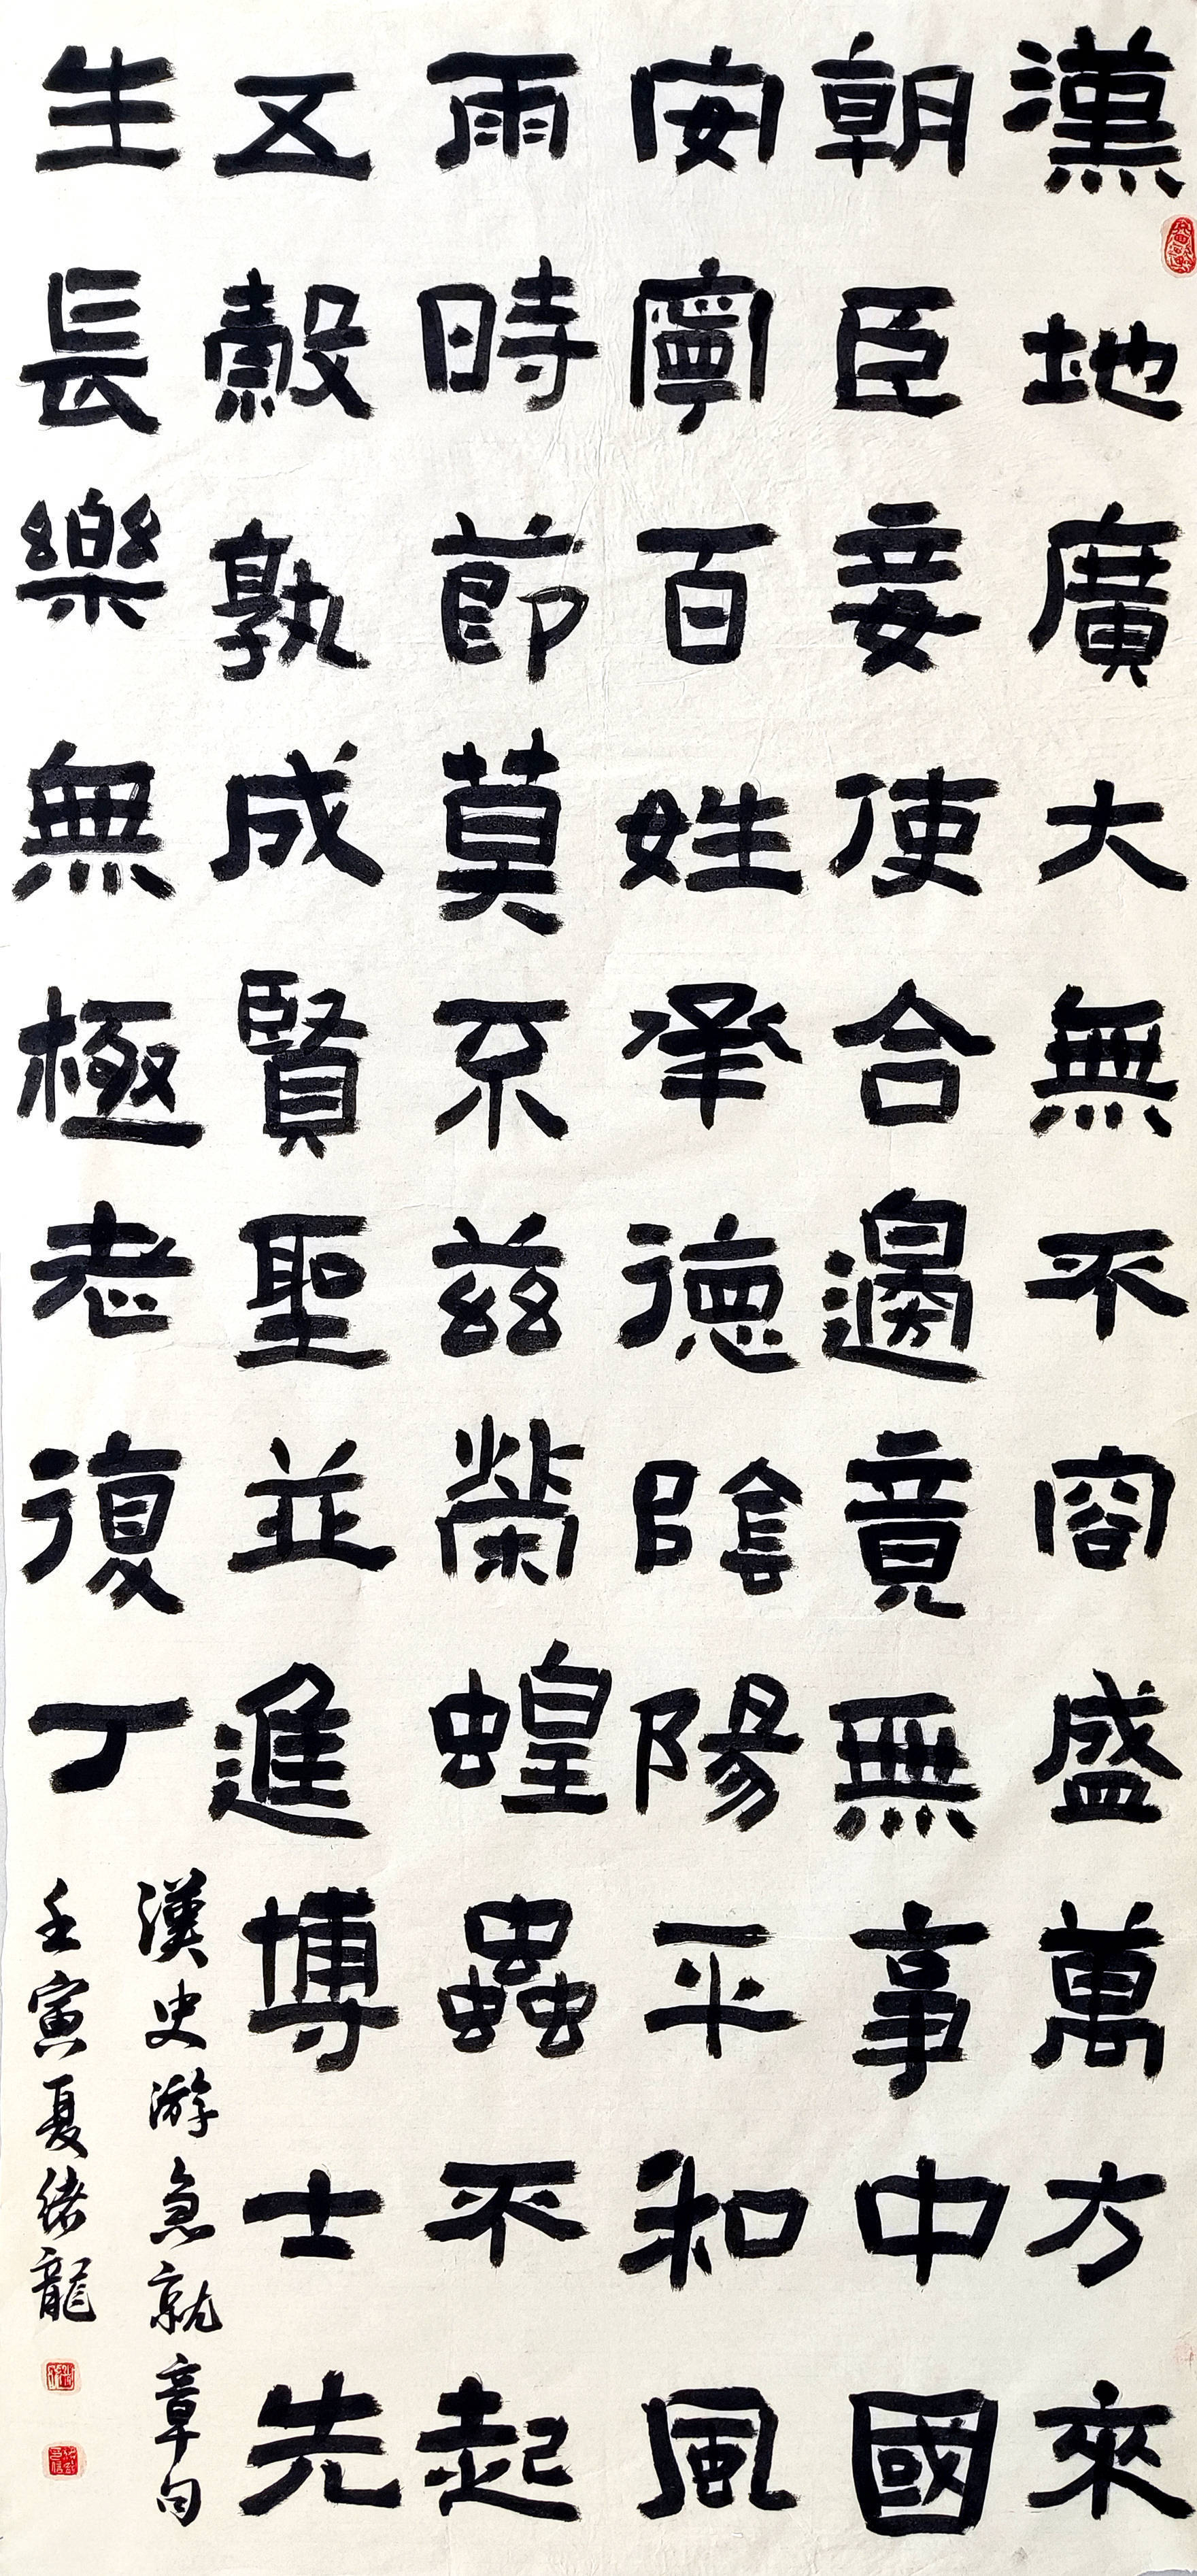 漢地廣大無不容盛萬方來
朝臣妾使合邊竟無事中國
安寧百姓承德陰陽平和風
雨時節莫不茲榮蝗蟲不起
五穀孰成賢聖並進博士先
生長樂無極老復丁
漢史游急就章句
壬寅夏緒龍